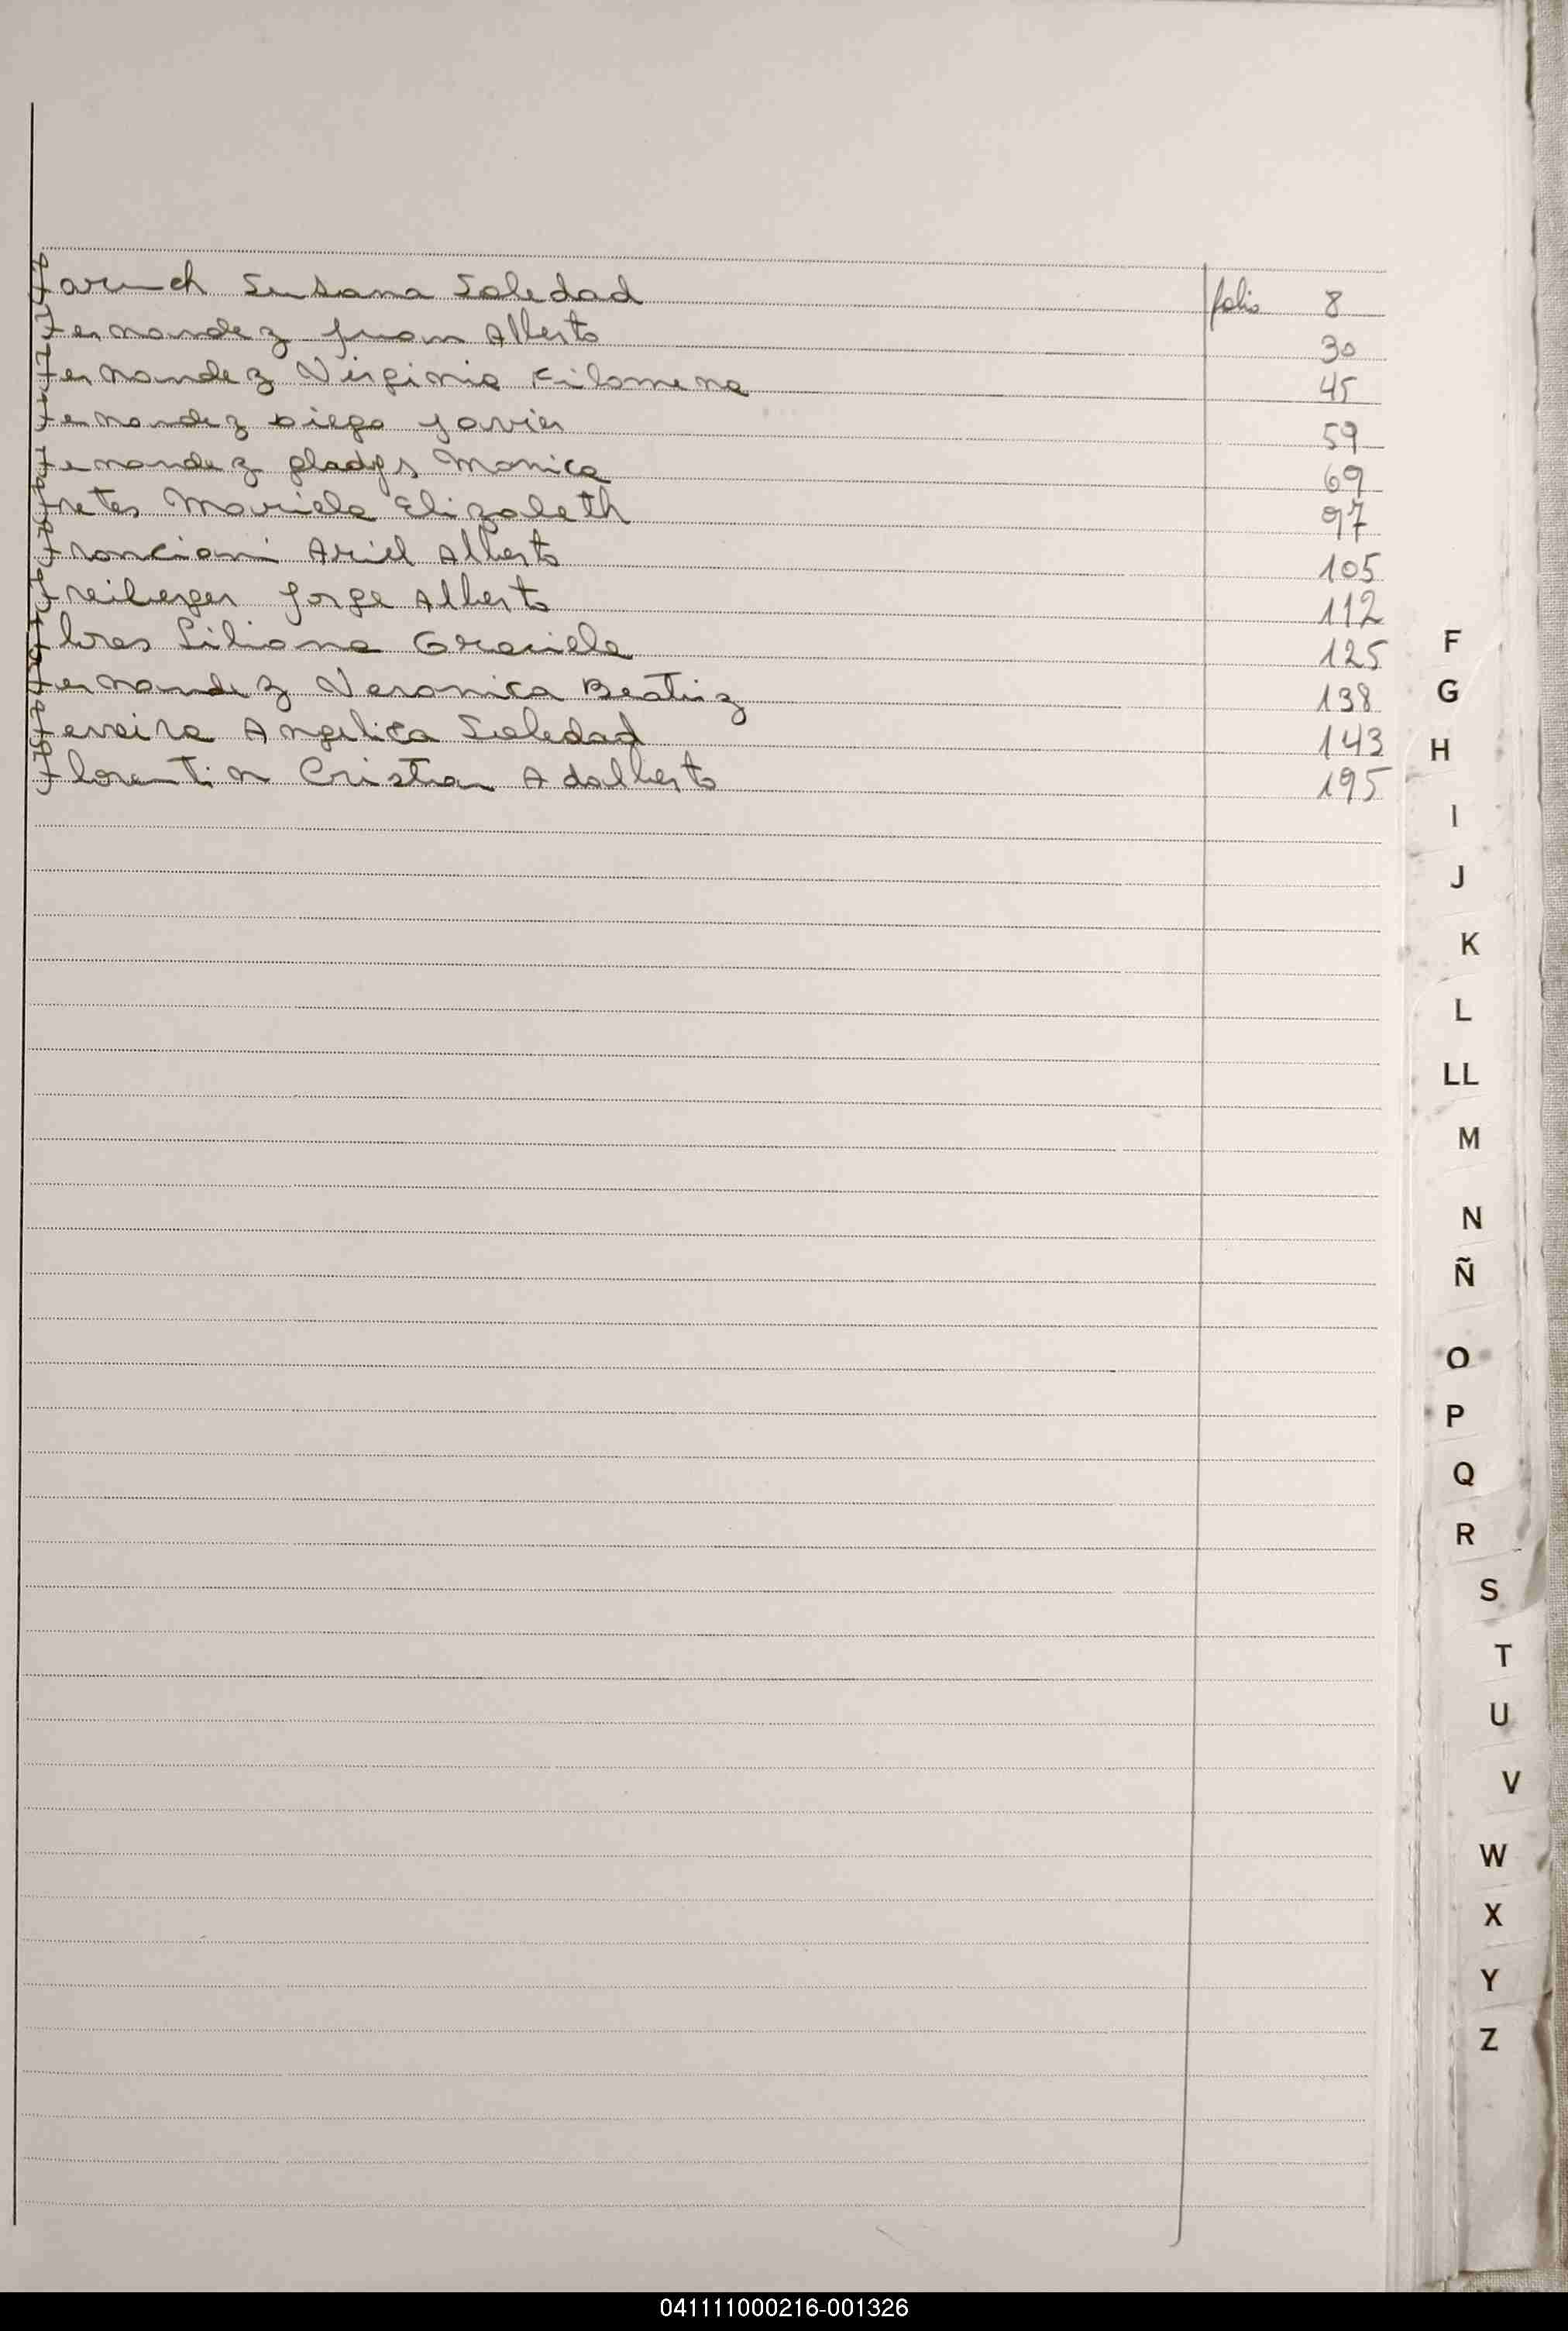 Faruch Susana Soledad folio 8
Fernandez Juan Alberto 30
Fernandez Virginia Filomena 45
Fernandez Diego Javier 59
Fernandez Gladys Monica 69
Fretes Mariela Elizabeth 97
Franciani Ariel Alberto 105
Freiberger Jorge Alberto 112
Flores Liliana Graciela 125
Fernandez Veronica Beatriz 138
Ferreira Angelica Soledad 143
Florentin Cristian Adalberto 195
F
G
H
I
J
K
L
LL
M
N
Ñ
O
P
Q
R
S
T
U
V
W
X
Y
Z
041111000216-001326